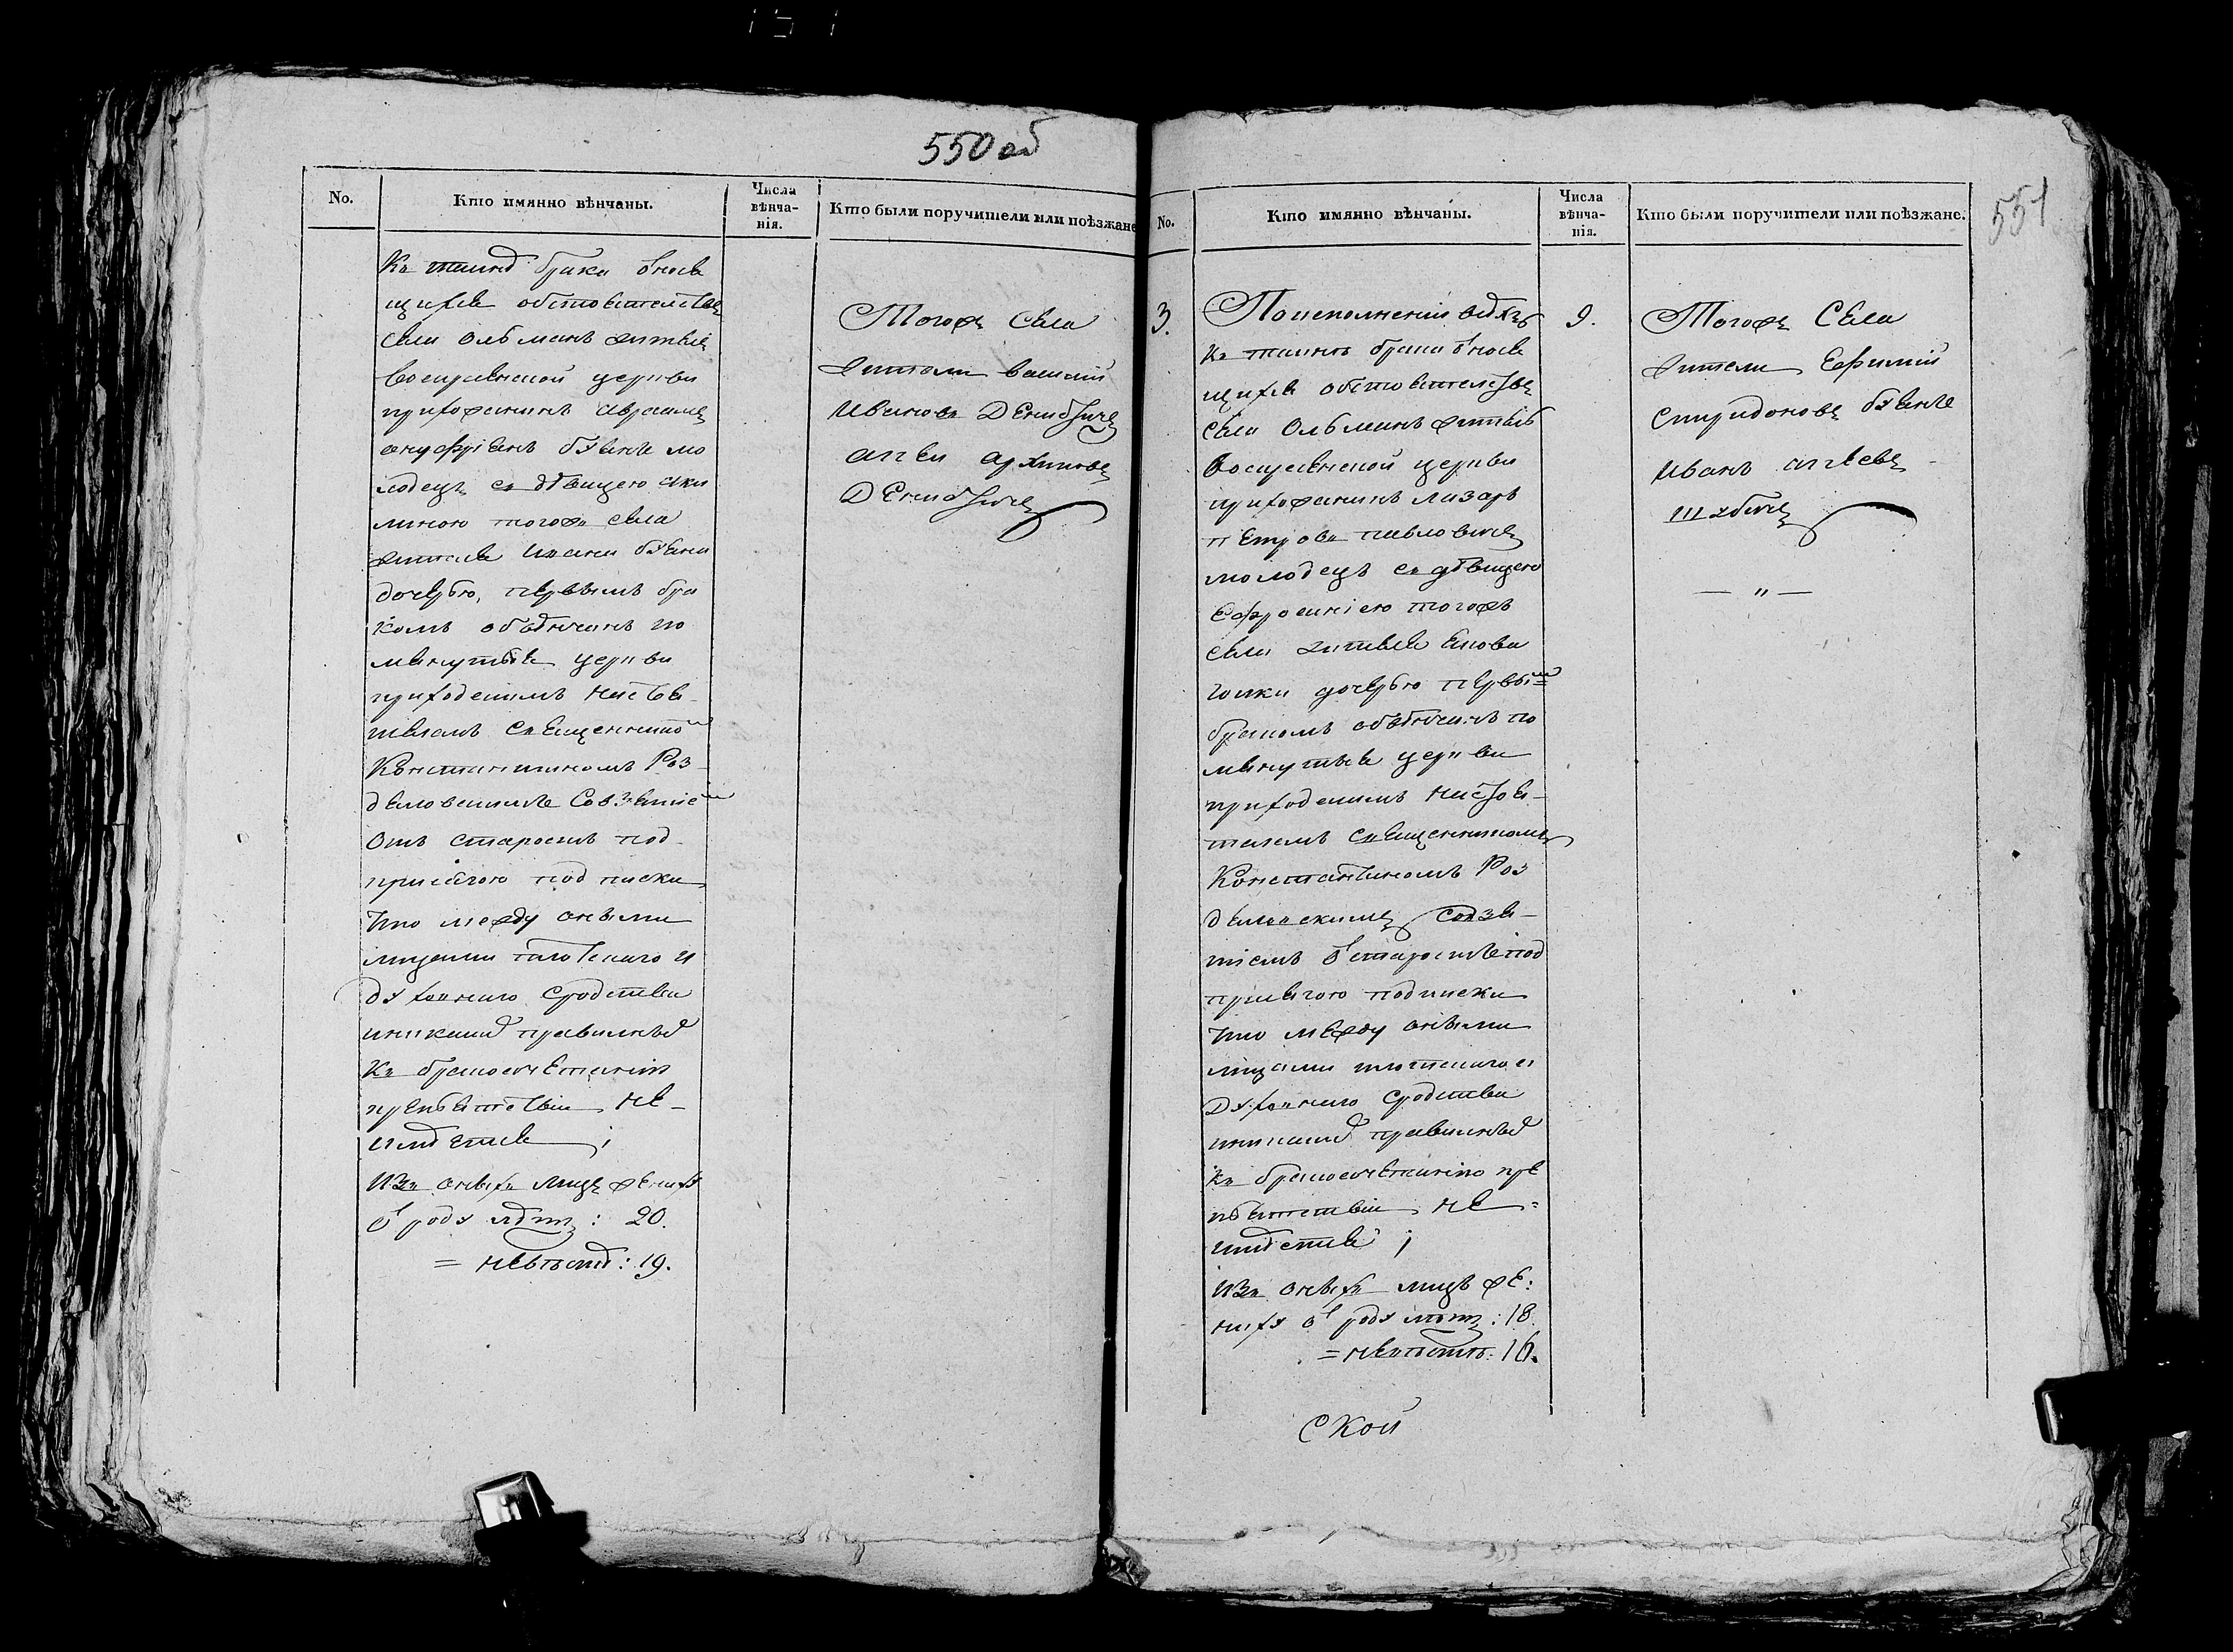 550 об
No.
Кто имянно вѣнчаны.
Числа
вѣнча-
нія.
Кто были поручители или поѣзжане
Къ таинѣ брака относя
щихся обстоятельствъ
села Ольманъ житель
воскресенской церкви
прихожанинъ Авраамъ
ануфріевъ молодецъ
съ дѣвицею аки
линою тогожъ села
жителя
дочерью, первымъ бра
комъ обвѣнчанъ по
мянутыя церкви
приходскимъ настоя-
телемъ священникомъ
Константиномъ Роз-
деловскимъ со взятіемъ
отъ старостъ под
присягою подписки
что между оными
лицами плотскаго и
духовнаго сродства
и никакихъ правильныхъ
къ бракосочетанію
препятствій не-
имѣется ;
Изъ оныхъ лицъ жениху
отъ роду лѣтъ : 20.
= невѣстѣ : 19.
Тогожъ Села
жители василій
Ивановъ
архиповъ
No.
Кто имянно вѣнчаны.
Числа
вѣнча-
нія.
Кто были поручители или поѣзжане.
551
3.
По исполненіи всѣхъ
къ таинѣ брака относя
щихся обстоятельствъ
села Ольманъ житель
воскресенской церкви
прихожанинъ лазарь
петровъ павловичъ
молодецъ съ дѣвицею
Ефросиніею тогожъ
села жителя якова
дочерью первымъ
бракомъ обвѣнчанъ по
мянутыя церкви
приходскимъ настоя-
телемъ священникомъ
Константиномъ Роз
деловскимъ со взя-
тіемъ от старостъ под
присягою подписки
что между оными
лицами плотскаго и
духовнаго сродства
и никакихъ правильныхъ
къ бракосочетанію пре
пятствій не=
имѣется ;
Изъ оныхъ лицъ же:
ниху отъ роду лѣтъ : 18.
= невѣстѣ : 16.
9.
Тогожъ Села
жители Ефимій
спиридоновъ
Иванъ
— " —
ской